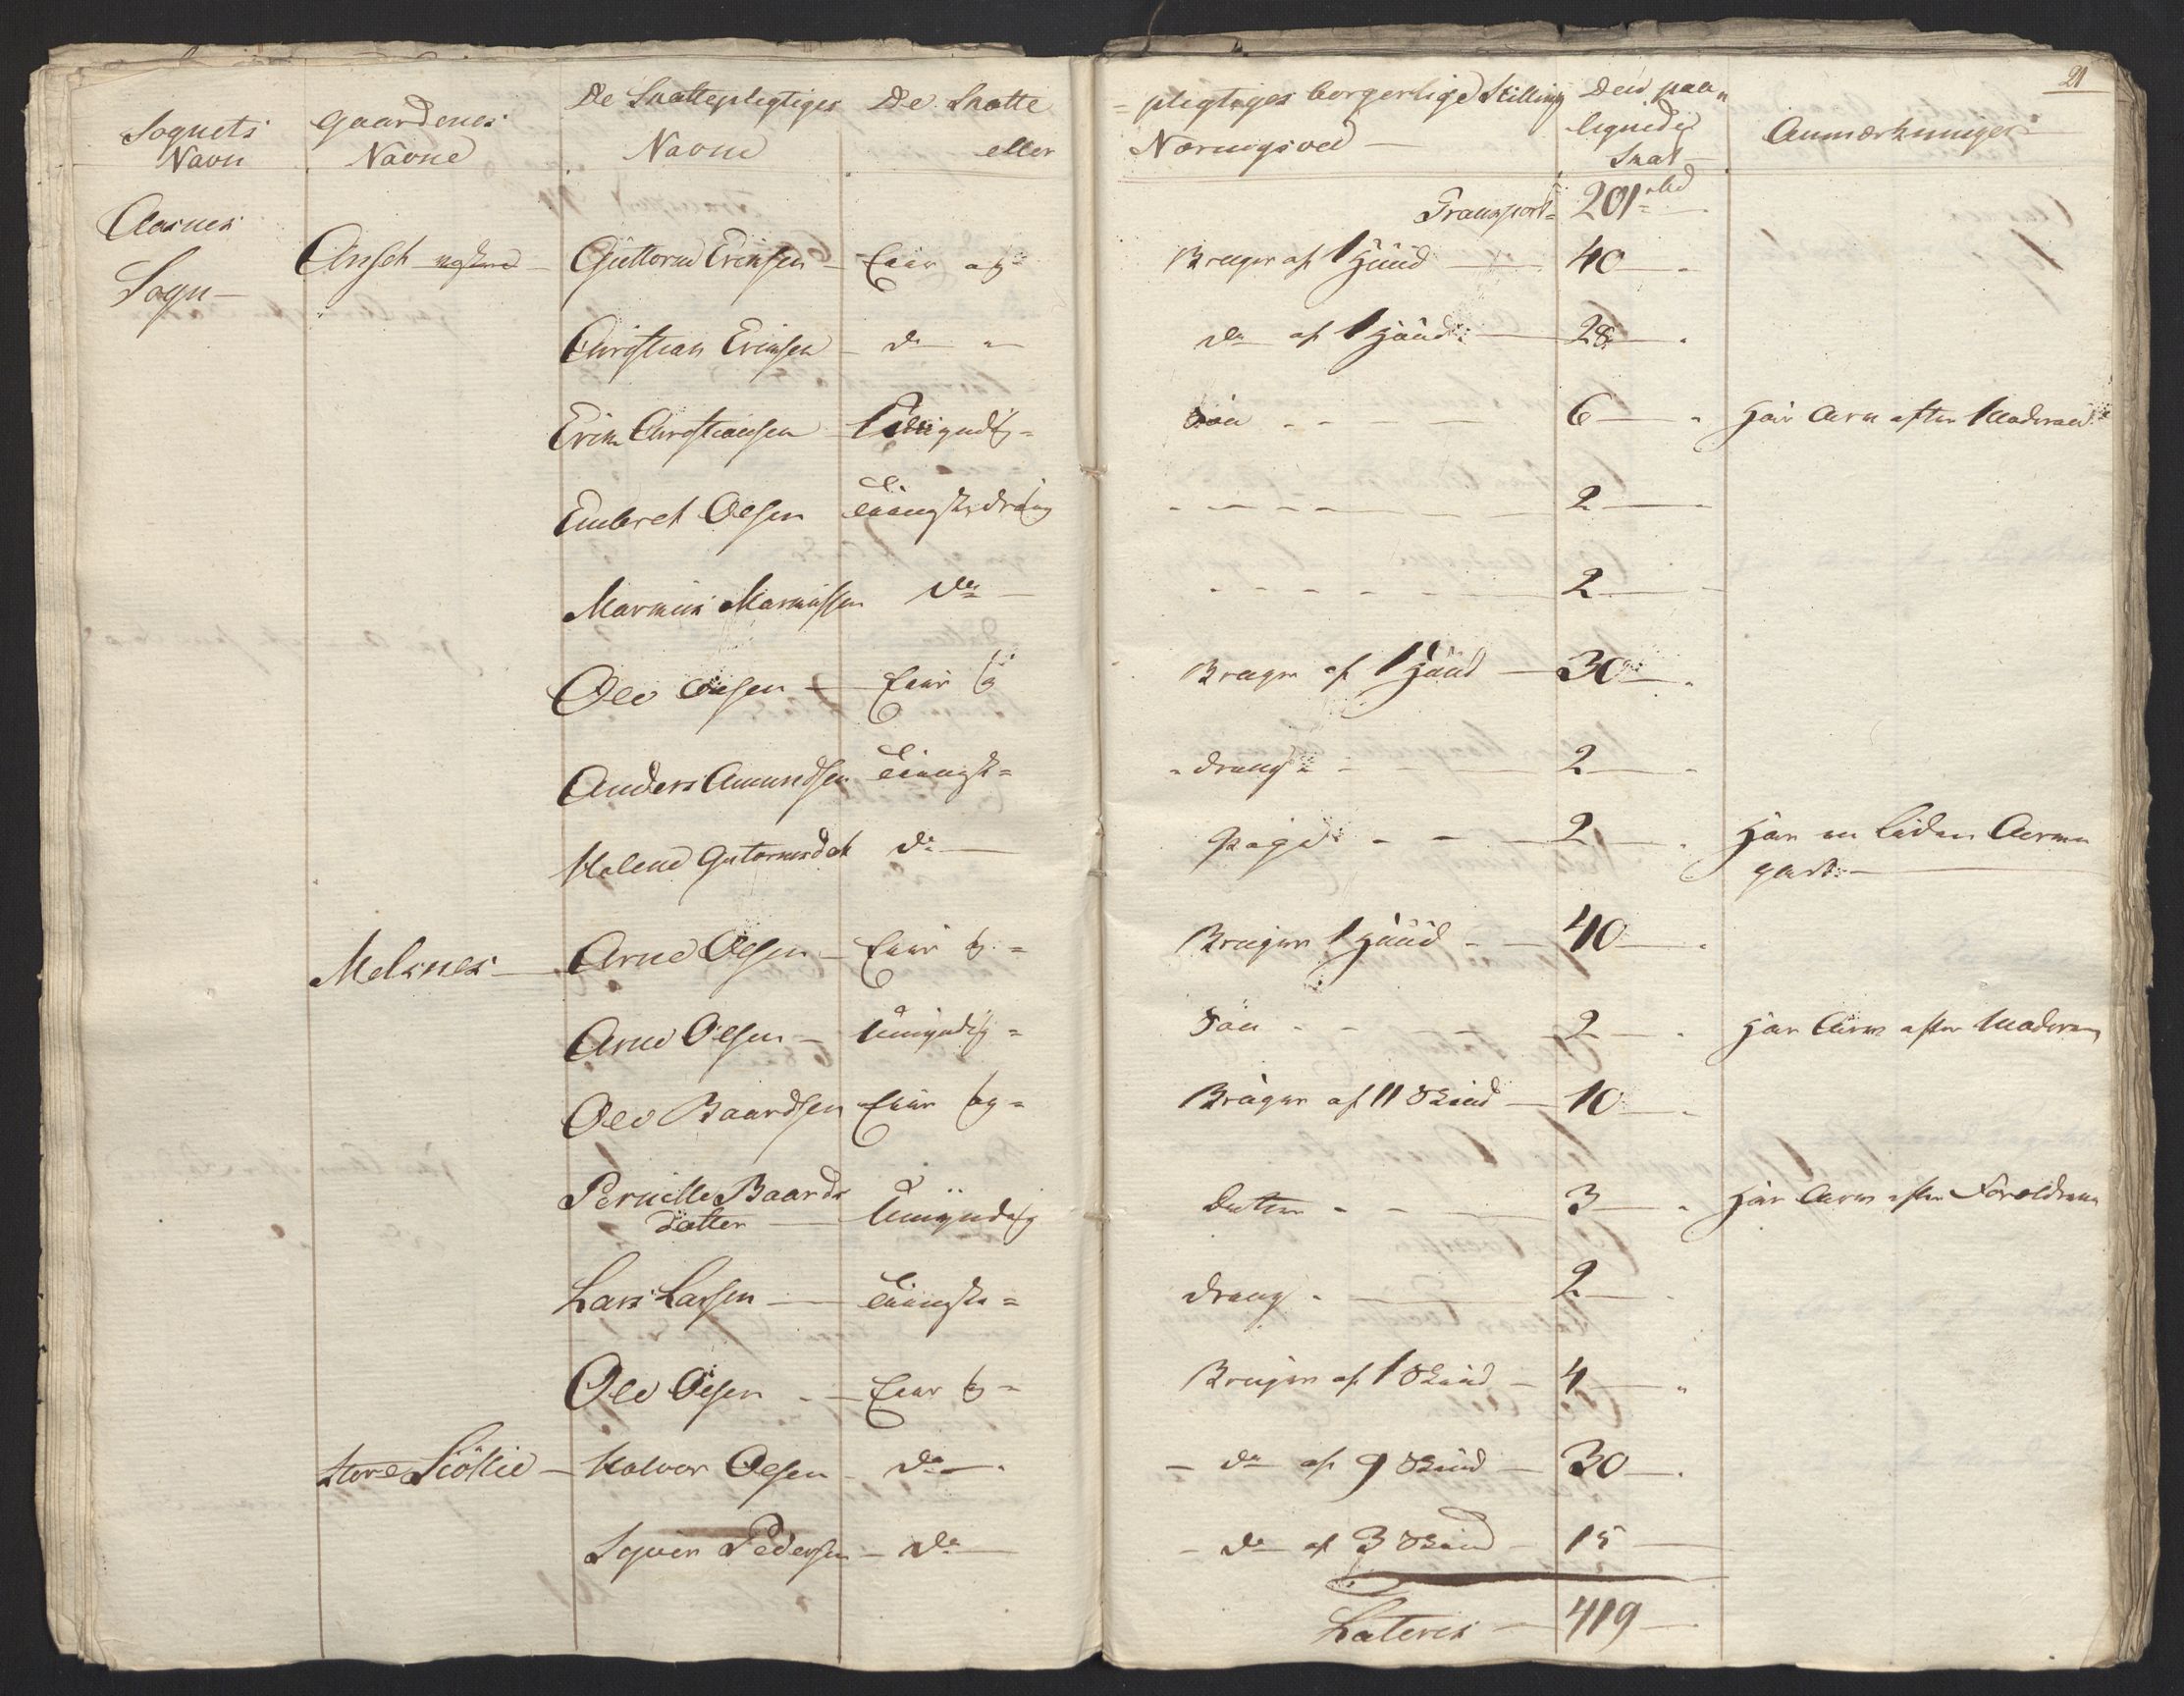 21
Sognets Navn
Gaardenes Navne
De Skattepligtiges Navne
De Skatte = pligtiges borgerlige Stilling
eller Næringsvei —
Den paa lignede Skat
Anmærkninger
Transport = 201 rbd
Aasnes Sogn —
Guttorm Ericksen — Eier og Bruger af 1 Huud — 40 —
Christian Ericksen — do do af 1 Huud — 28 —
Erick Christiansen Umÿndig = Sön — 6 — Har Arv efter Moderen
Embret Olsen Tieneste dräng — 2 —
Marcus Marcussen do — 2 —
Ole Olsen — Eier og Bruger af 1 Huud — 30 —
Anders Amundsen Tieneste = dreng — 2 —
Malene Gutormsdat do — Pige — 2 — Har en liden Arve
part —
Melsnes — Arne Olsen — Eier og = Bruger 1 Huud — 40 —
Arne Olsen — Umÿndig = Sön — 2 — Har Arv efter Moderen
Ole Baardsen Eier og = Bruger af 11 Skind — 10 —
Pernille Baards
datter — Umÿndig Datter — 3 — Har Arv efter Foreldrene
Lars Larsen — Tieneste = dreng — 2 —
Ole Olsen — Eier og = Bruger af 1 Skind — 4 —
Store Siöllie — Halvor Olsen do — do af 9 Skind — 30 —
Pedersen — do — do af 3 Skind — 15 —
Lateris — 419 —